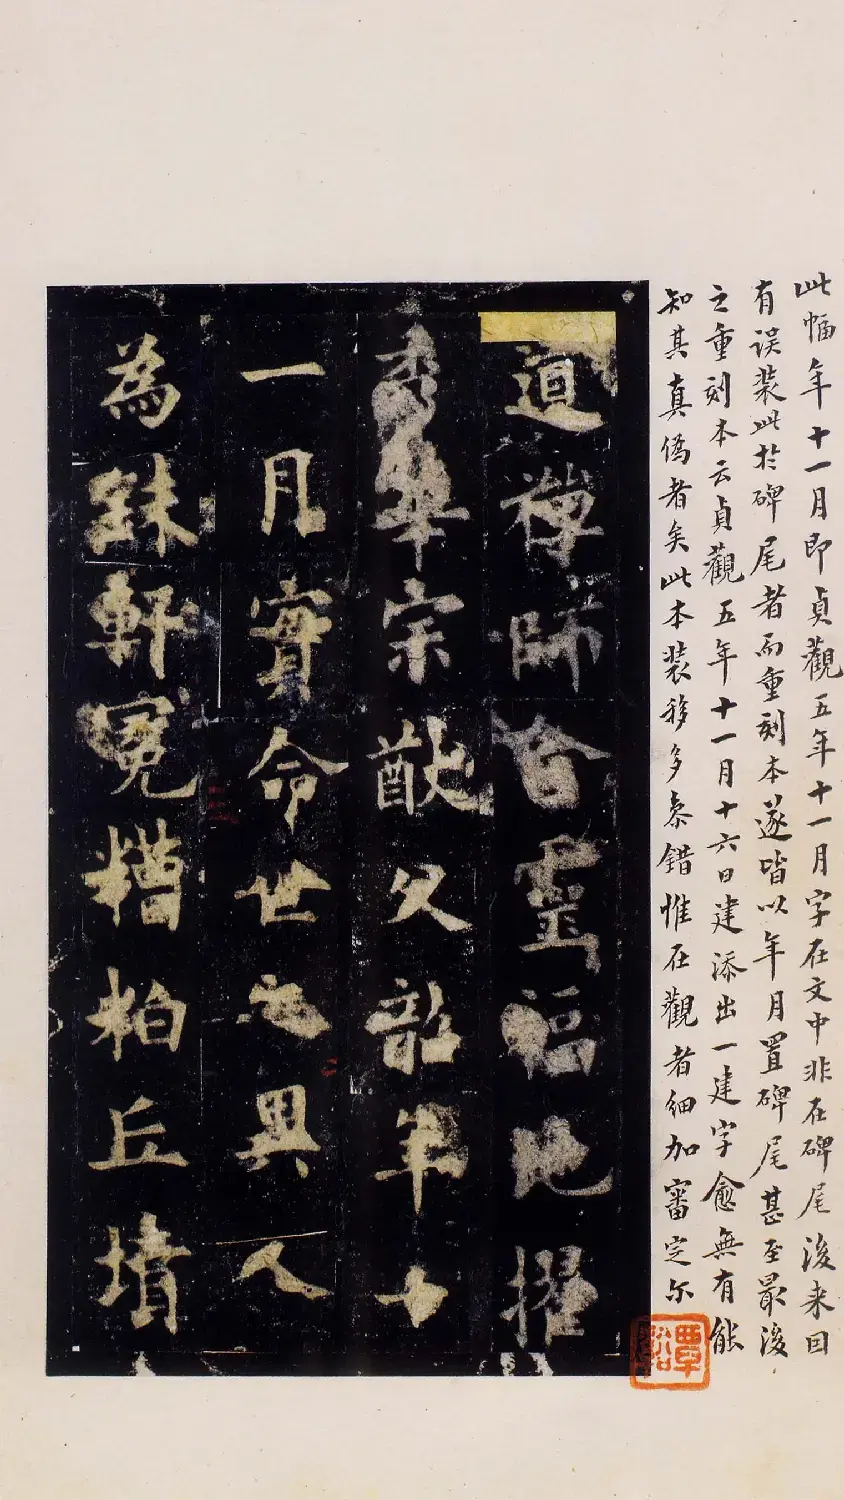 此幅年十一月即貞觀五年十一月字在文中非在碑尾後来因
有誤裝此於碑尾者而重刻本遂皆以年月置碑尾甚至最後
之重刻本云貞觀五年十一月十六日建添出一建字愈無有能
知其真偽者矣此本裝移多參錯惟在觀者細加審定尔
覃谿
道禪師含靈福地擢
秀華宗猷父韶年十
一月實命世之異人
為銖軒冕糟粕丘墳